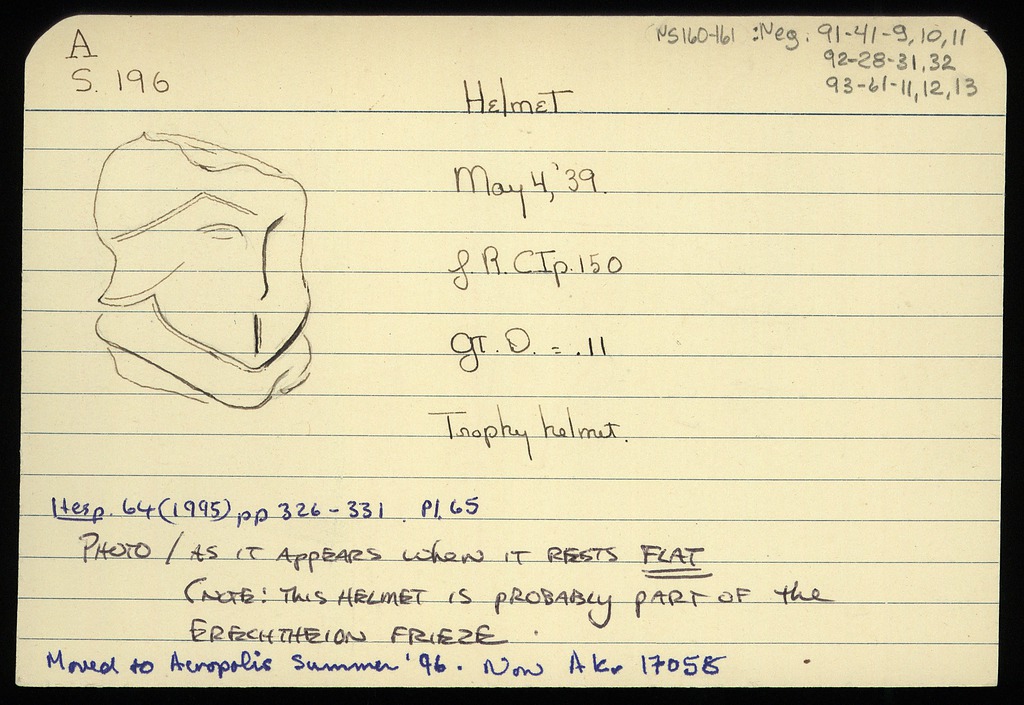 A
S. 196
NS160-161 : Neg. 91-41-9, 10, 11
92-28-31, 32
93-61-11, 12, 13
Helmet
May 4, '39.
f R. CIp. 150
gt. D. = .11
Trophy helmet.
Hesp. 64 (1995) pp 326-331. Pl. 65
PHOTO / AS IT APPEARS when IT RESTS FLAT
(NOTE: THIS HELMET IS PROBABLY PART OF the
ERECHTHEION FRIEZE.
Moved to Acropolis Summer '96. Now Akr 17058